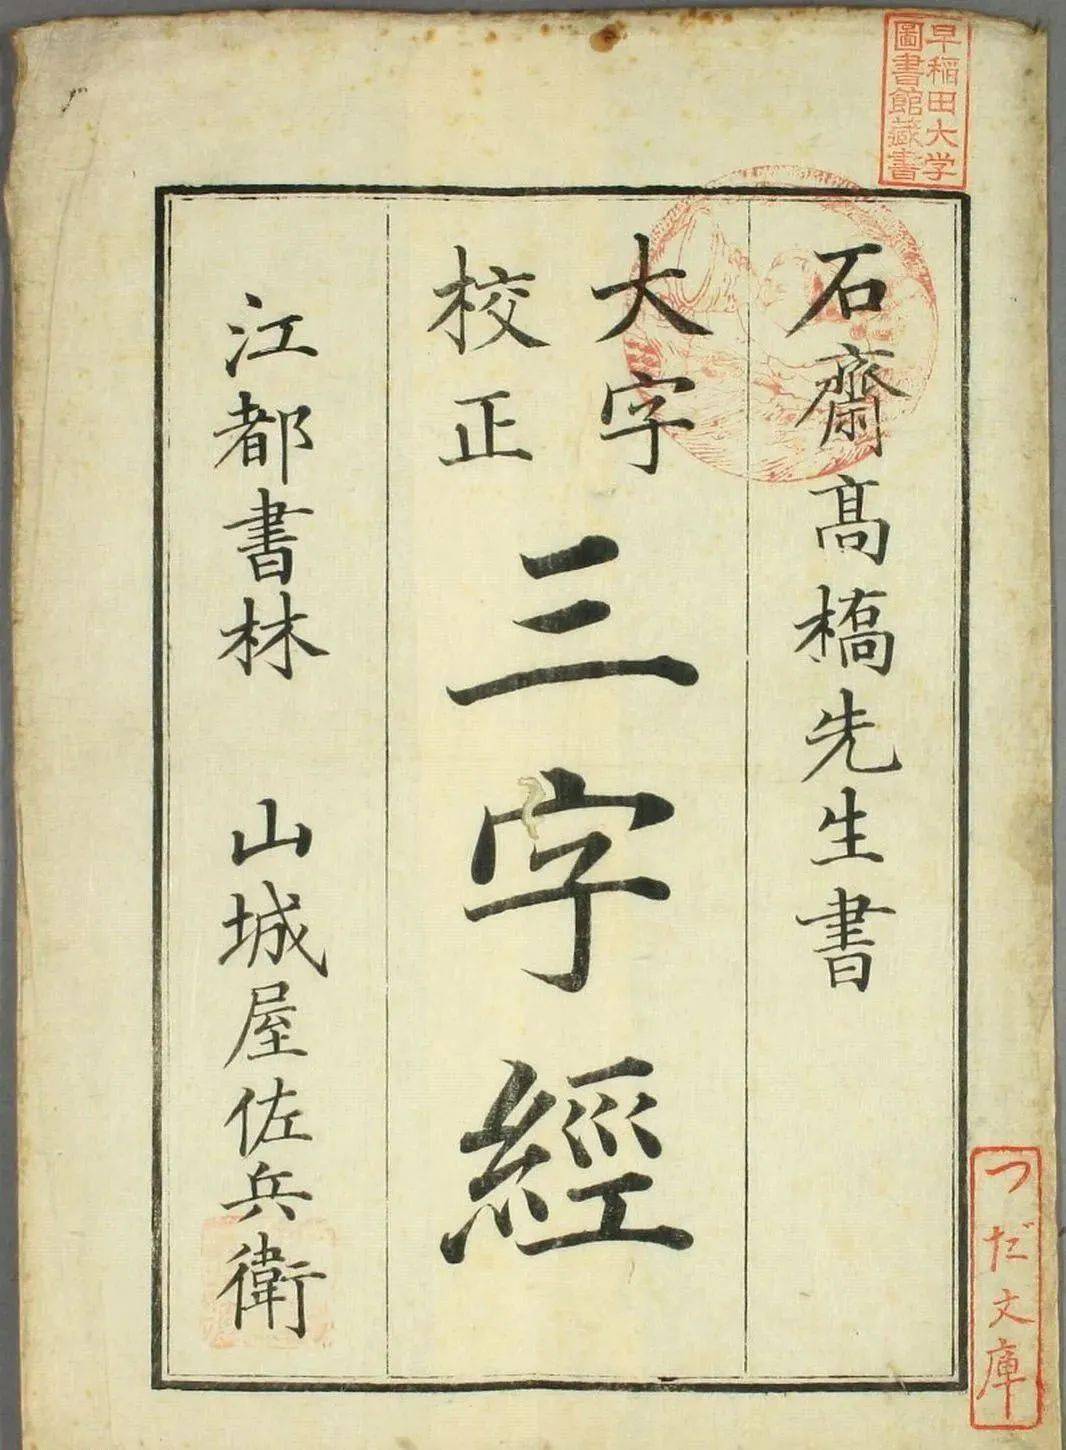 早稲田大学
圖書館蔵書
石齋髙橋先生書
大字
校正
三字經
江都書林 山城屋佐兵衛
つだ文庫